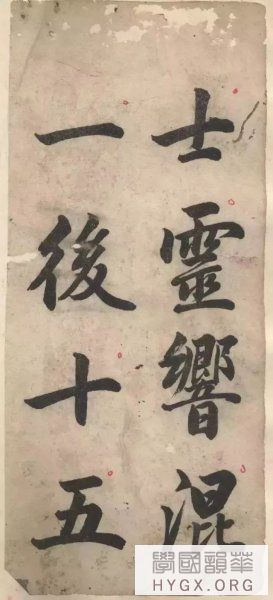 士靈響混
一後十五
華韻國學
HYGX.ORG